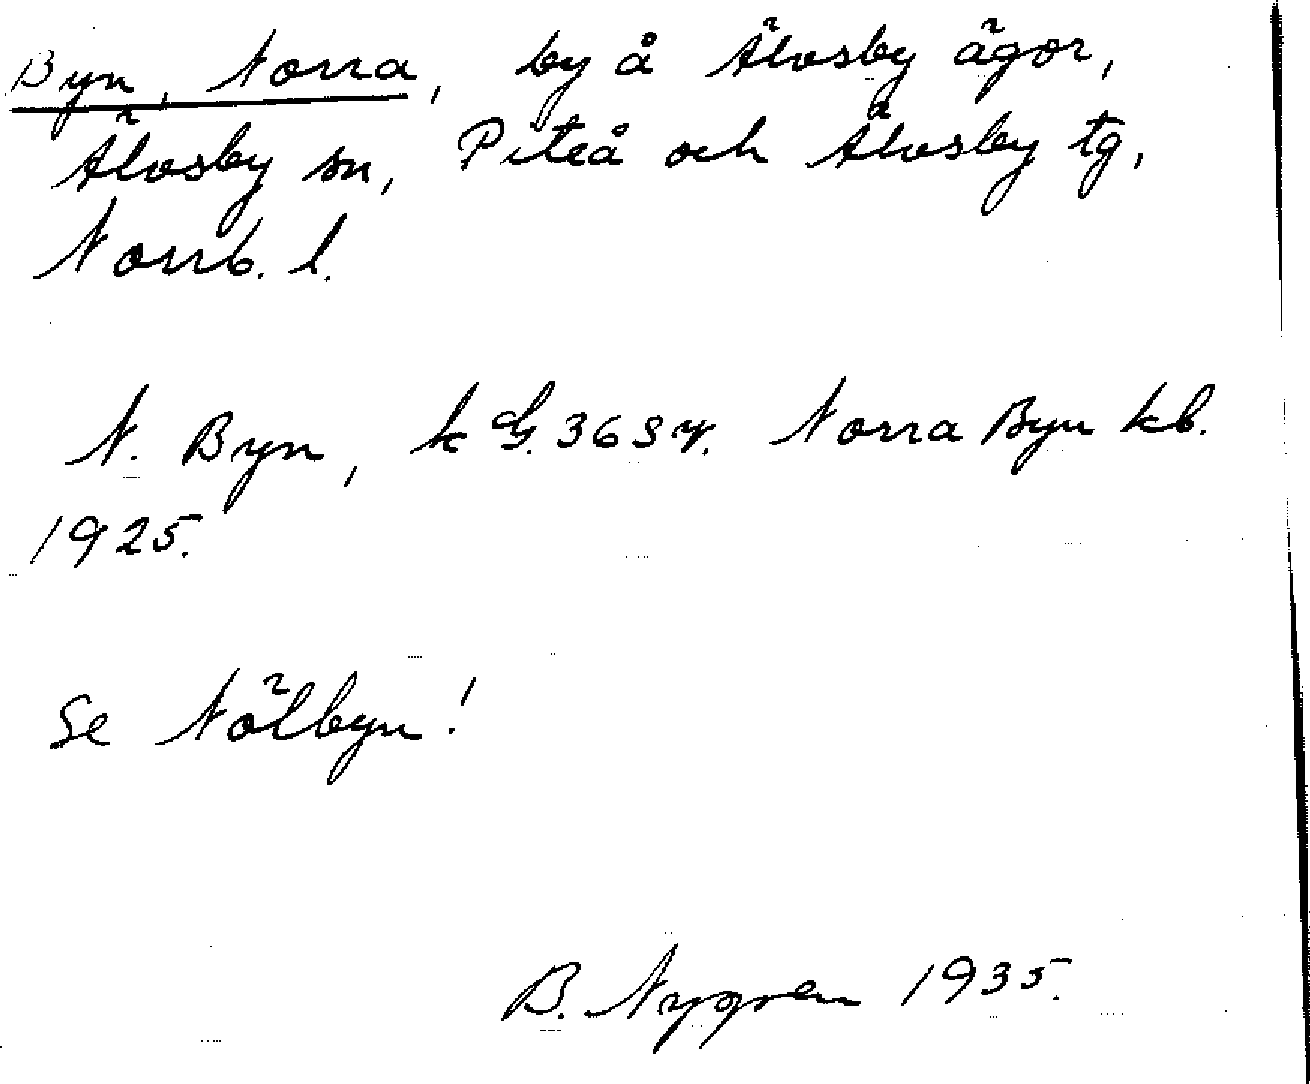 Byn, Norra, by å Älvsby ägor,
Älvsby sn, Piteå och Älvsby tg,
Norrb. l.
N. Byn, k G. 36 Sy. Norra Byn kb.
1925.
Se Nölbyn!
B. Nygren 1935.